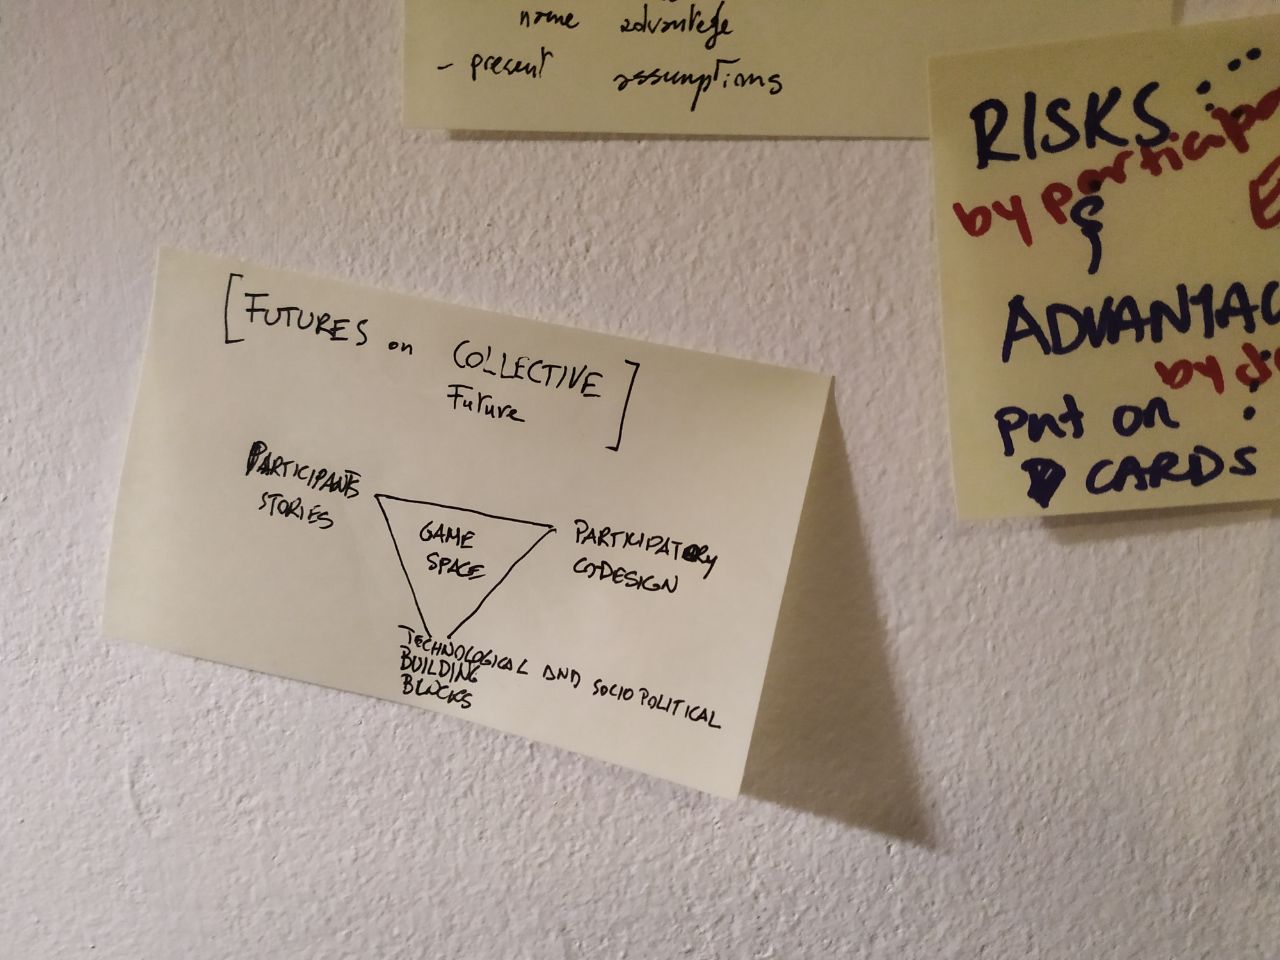 name advantage
- present assumptions
RISKS...
by particip
&
ADVANTAG
by
put on
CARDS
[FUTURES on COLLECTIVE
Future]
PARTICIPANTS
STORIES
GAME
SPACE
PARTICIPATORY
CODESIGN
TECHNOLOGICAL AND SOCIOPOLITICAL
BUILDING
BLOCKS